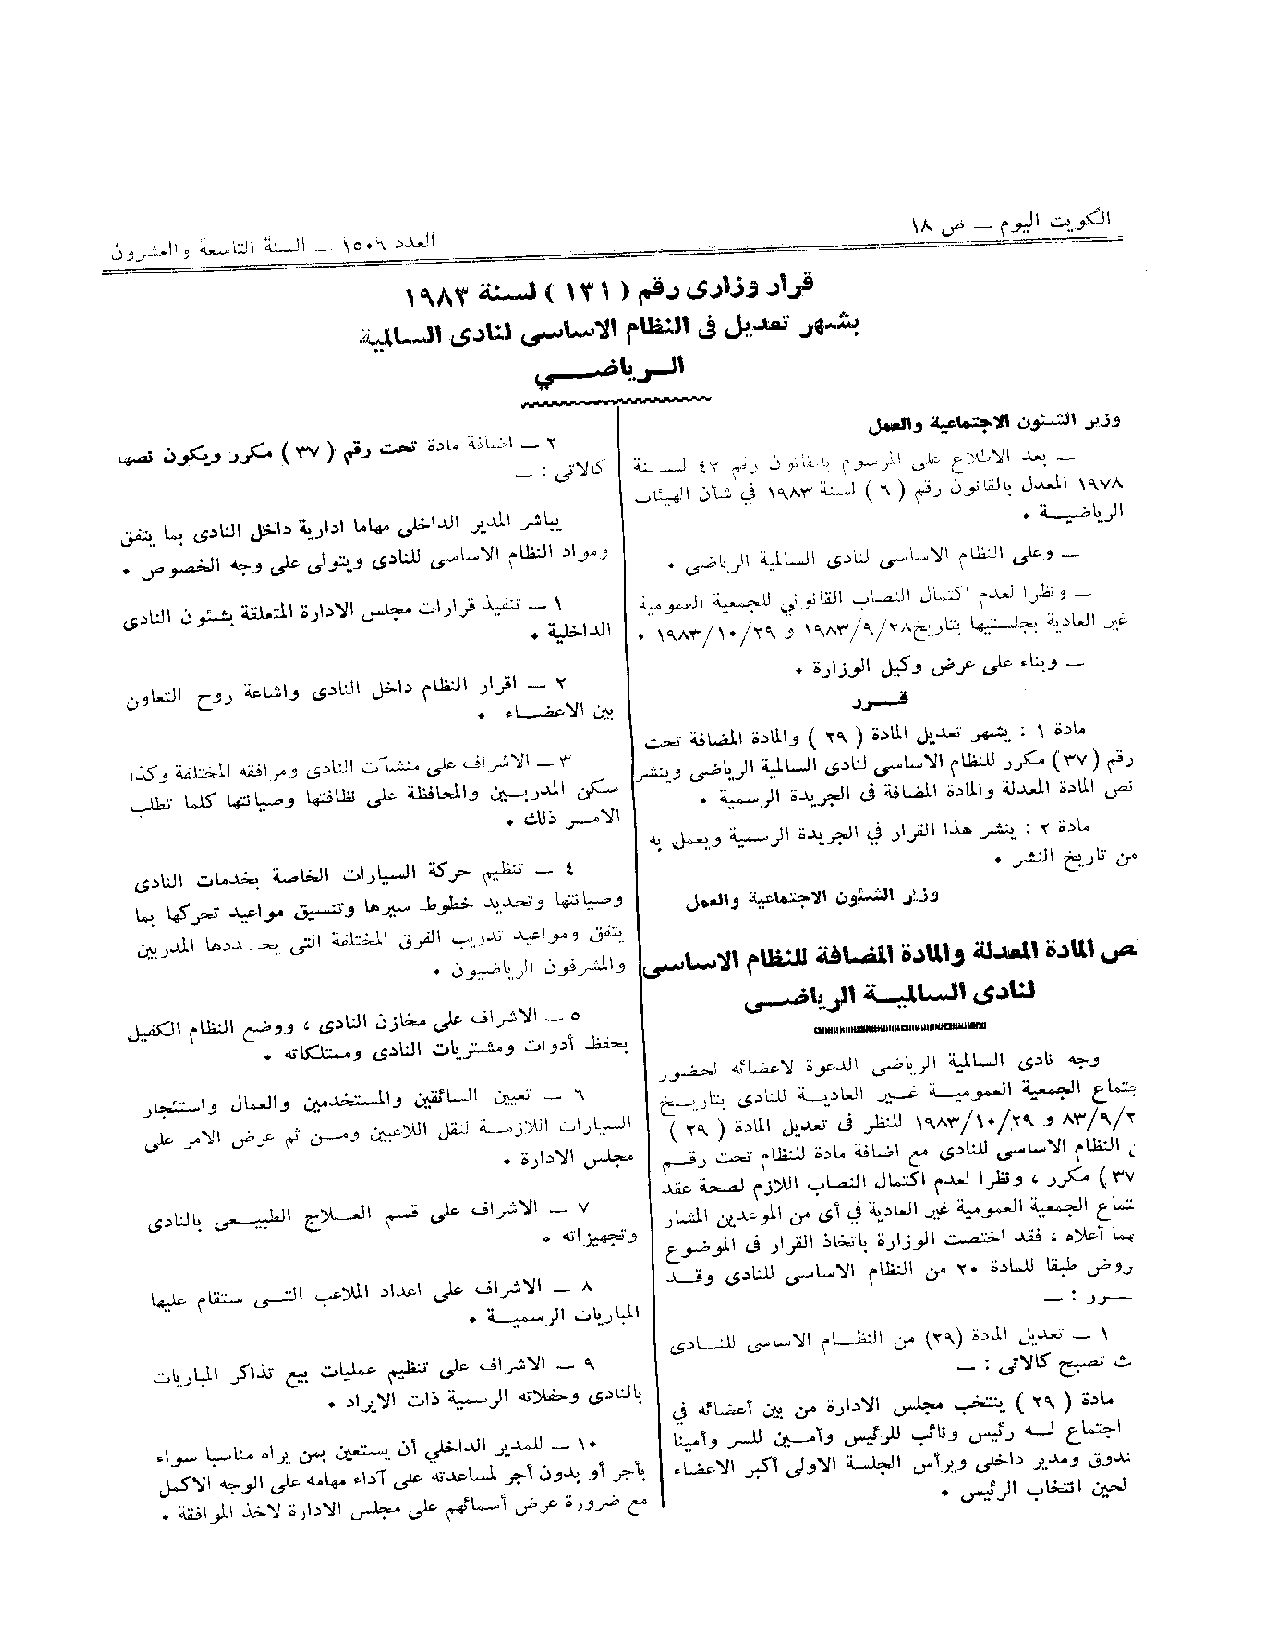 الكويت اليوم — ص ١٨
العدد ١٥٠٦ — السنة التاسعة والعشرون
قرار وزارى رقم ( ١٣١ ) لسنة ١٩٨٣
بشهر تعديل فى النظام الاساسى لنادى السالمية
الـرياضــــي
وزير الشئون الاجتماعية والعمل
— بعد الاطلاع على المرسوم بالقانون رقم ٤٢ لســنة
١٩٧٨ المعدل بالقانون رقم ( ٦ ) لسنة ١٩٨٣ في شأن الهيئات
الرياضيــة •
— وعلى النظام الاساسى لنادى السالمية الرياضى •
— ونظرا لعدم اكتمال النصاب القانوني للجمعية العمومية
غير العادية بجلستيها بتاريخ ١٩٨٣/٩/٢٨ و ١٩٨٣/١٠/٢٩ •
— وبناء على عرض وكيل الوزارة •
قــــرر
مادة ١ : يشهر تعديل المادة ( ٢٩ ) والمادة المضافة تحت
رقم (٣٧) مكرر للنظام الاساسى لنادى السالمية الرياضى وينشر
نص المادة المعدلة والمادة المضافة فى الجريدة الرسمية •
مادة ٢ : ينشر هذا القرار في الجريدة الرسمية ويعمل به
من تاريخ النشر •
وزير الشئون الاجتماعية والعمل
ص المادة المعدلة والمادة المضافة للنظام الاساسى
لنادى السالميـــة الرياضـــى
وجه نادى السالمية الرياضى الدعوة لاعضائه لحضور
جتماع الجمعية العموميــة غـــير العاديــة للنادى بتاريــخ
٨٣/٩/٢ و ١٩٨٣/١٠/٢٩ للنظر فى تعديل المادة ( ٢٩ )
ن النظام الاساسى للنادى مع اضافة مادة للنظام تحت رقــم
٣٧ ) مكرر ، ونظرا لعدم اكتمال النصاب اللازم لصحة عقد
تماع الجمعية العمومية غير العادية في أى من الموعدين المشار
بهما أعلاه ، فقد اختصت الوزارة باتخاذ القرار فى الموضوع
روض طبقا للمادة ٢٠ من النظام الاساسى للنادى وقــد
ـــرر : —
١ — تعديل المادة (٢٩) من النظــام الاساسى للنــادى
ث تصبح كالاتى : —
مادة ( ٢٩ ) ينتخب مجلس الادارة من بين أعضائه في
اجتماع لــه رئيس ونائب للرئيس وأمــين للسر وأمينا
ندوق ومدير داخلى ويرأس الجلسة الاولى أكبر الاعضاء
لحين انتخاب الرئيس •
٢ — اضافة مادة تحت رقم ( ٣٧ ) مكرر ويكون نصها
كالاتي : —
يباشر المدير الداخلى مهاما ادارية داخل النادى بما يتفق
ومواد النظام الاساسى للنادى ويتولى على وجه الخصوص •
١ — تنفيذ قرارات مجلس الادارة المتعلقة بشئون النادى
الداخلية •
٢ — اقرار النظام داخل النادى واشاعة روح التعاون
بين الاعضــاء •
٣ — الاشراف على منشآت النادى ومرافقه المختلفة وكذا
سكن المدربــين والمحافظة على نظافتها وصيانتها كلما تطلب
الامــر ذلك •
٤ — تنظيم حركة السيارات الخاصة بخدمات النادى
وصيانتها وتحديد خطوط سيرها وتنسيق مواعيد تحركها بما
يتفق ومواعيد تدريب الفرق المختلفة التى يحــددها المدربين
والمشرفون الرياضيون •
٥ — الاشراف على مخازن النادى ، ووضع النظام الكفيل
بحفظ أدوات ومشتريات النادى وممتلكاته •
٦ — تعيين السائقين والمستخدمين والعمال واستئجار
السيارات اللازمــة لنقل اللاعبين ومــن ثم عرض الامر على
مجلس الادارة •
٧ — الاشراف على قسم العــلاج الطبيــعى بالنادى
وتجهيزاته •
٨ — الاشراف على اعداد الملاعب التــى ستقام عليها
المباريات الرسميــة •
٩ — الاشراف على تنظيم عمليات بيع تذاكر المباريات
بالنادى وحفلاته الرسمية ذات الايراد •
١٠ — للمدير الداخلي أن يستعين بمن يراه مناسبا سواء
بأجر أو بدون أجر لمساعدته على آداء مهامه على الوجه الاكمل
مع ضرورة عرض أسمائهم على مجلس الادارة لاخذ الموافقة •